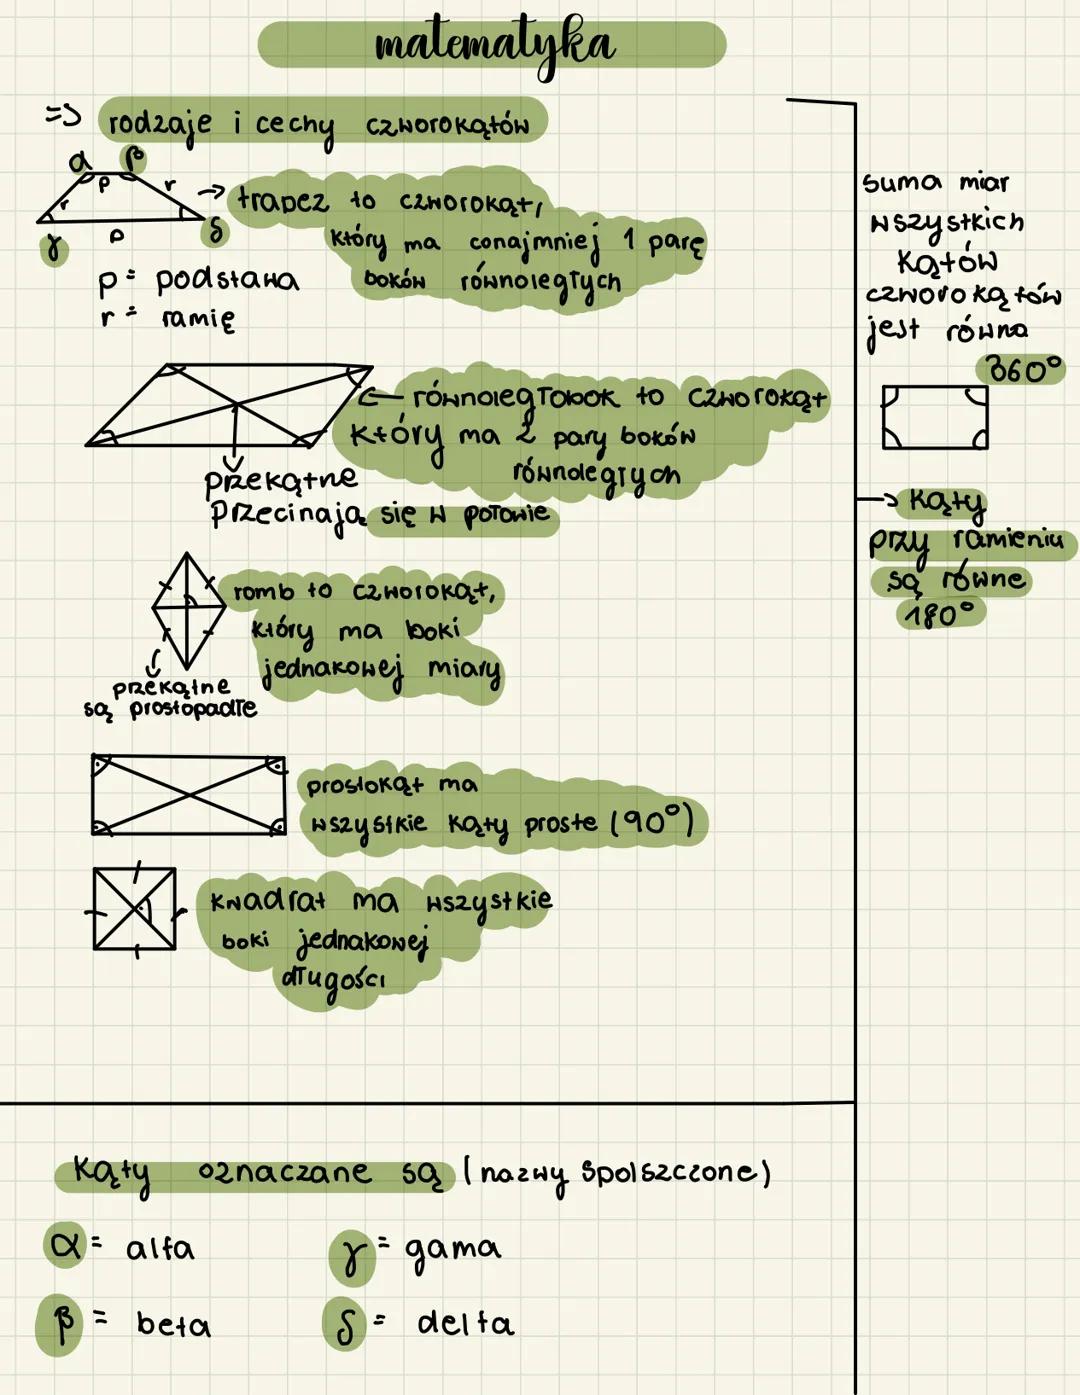 matematyka
=> rodzaje i cechy czworokątów
α β
p r
r
p
γ δ
→ trapez to czworokąt,
który ma conajmniej 1 parę
boków równoległych
p = podstawa
r = ramię
← równoległobok to czworokąt
który ma 2 pary boków
równoległych
przekątne
przecinają się w połowie
romb to czworokąt,
który ma boki
jednakowej miary
przekątne
są prostopadłe
prostokąt ma
wszystkie kąty proste (90°)
kwadrat ma wszystkie
boki jednakowej
długości
suma miar
wszystkich
kątów
czworokątów
jest równa
360°
→ kąty
przy ramieniu
są równe
180°
kąty oznaczane są (nazwy spolszczone)
α = alfa
γ = gama
β = beta
δ = delta